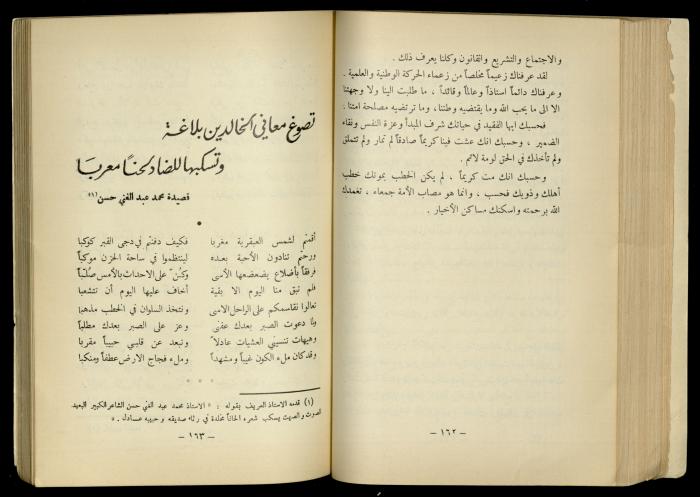 والاجتماع والتشريع والقانون وكلنا يعرف ذلك .
لقد عرفناك زعيماً مخلصاً من زعماء الحركة الوطنية والعلمية .
وعرفناك دائماً استاذاً وعالماً وقائداً ، ما طلبت الينا ولا وجهتنا
الا الى ما يحب الله وما يقتضيه وطننا، وما ترتضيه مصلحة امتنا .
فحسبك ايها الفقيد في حياتك شرف المبدأ وعزة النفس ونقاء
الضمير ، وحسبك انك عشت فينا كريماً صادقاً لم تمار ولم تتملق
ولم تأخذك في الحق لومة لائم .
وحسبك انك مت كريماً ، لم يكن الخطب بموتك خطب
أهلك وذويك فحسب ، وانما هو مصاب الأمة جمعاء ، تغمدك
الله برحمته واسكنك مساكن الأخيار .
– ١٦٢ –
تصوغ معاني الخالدين بلاغة
وتسكبها للضاد لحناً معربا
قصيدة محمد عبد الغني حسن (١)
أقمتم لشمس العبقرية مغربا فكيف دفنتم في دجى القبر كوكبا
ورحتم تنادون الأحبة بعده لينتظموا في ساحة الحزن موكبا
فرفقاً بأضلاع يضعضعها الأسى وكنّ على الاحداث بالأمس صلّبا
فلم تبق منا اليوم الا بقية أخاف عليها اليوم أن تتشعبا
تعالوا نقاسمكم على الراحل الاسى ونتخذ السلوان في الخطب مذهبا
ولما دعوت الصبر بعدك عقني وعز على الصبر بعدك مطلبا
وهيهات تنسيني العشيات عادلاً وتبعد عن قلبي حبيباً مقربا
وقد كان ملء الكون غيباً ومشهداً وملء فجاج الارض عطفاً ومنكبا
* * *
(١) قدمه الاستاذ العريف بقوله : « الاستاذ محمد عبد الغني حسن الشاعر الكبير البعيد
الصوت والصيت يسكب شعره الحاناً مخلدة في رثاء صديقه وحبيبه عادل . »
– ١٦٣ –